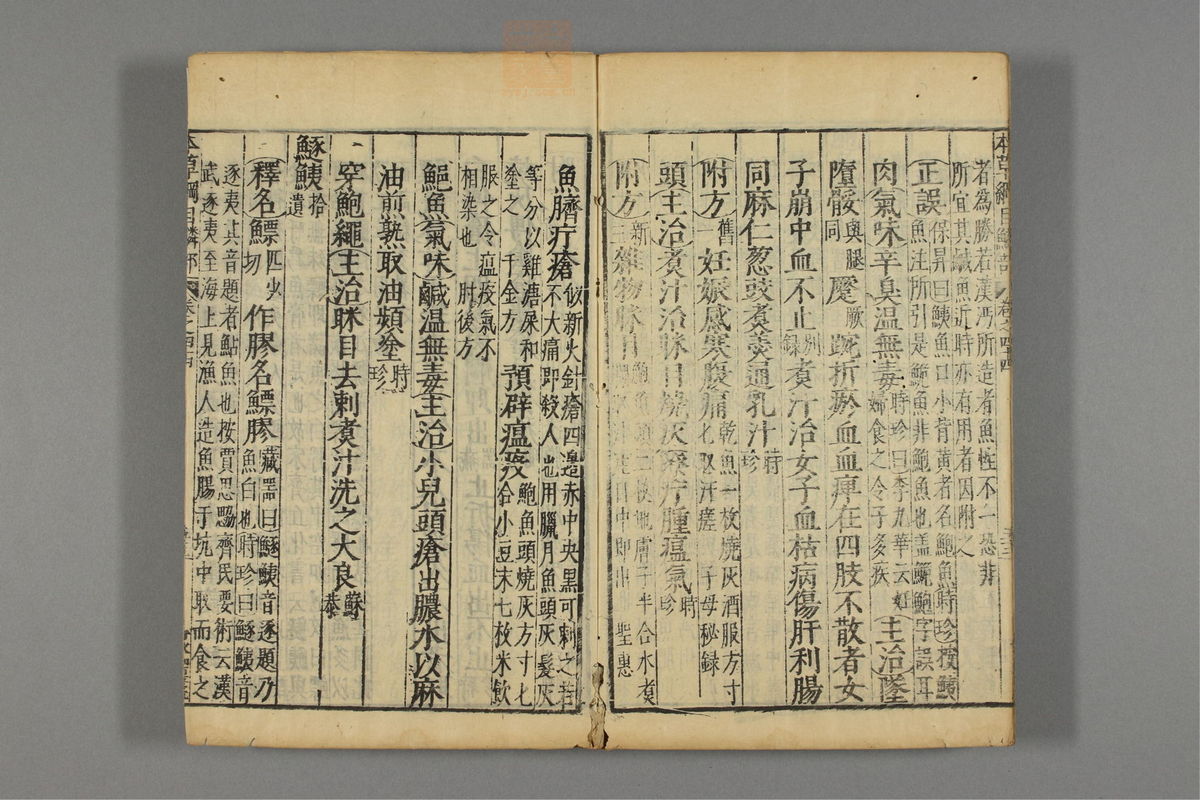 本草綱目鱗部 卷之四十四
者爲勝若漢沔所造者魚性不一恐非
所宜其鹹魚近時亦有用者因附之
正誤 保昇曰鮧魚口小背黃者名鮑魚時珍按鮧
魚注所引是鮠魚非鮑魚也蓋鮠鮑字誤耳
肉氣味辛臭温無毒 時珍曰李九華云妊
婦食之令子多疾 主治墜
墮骽 與腿
同 蹷 厥 踠折瘀血血痺在四肢不散者女
子崩中血不止 别
録 煑汁治女子血枯病傷肝利腸
同麻仁葱豉煑羹通乳汁 時
珍
附方 舊
一 妊娠感寒腹痛 乾魚一枚燒灰酒服方寸
匕取汗瘥 子母秘録
頭主治煑汁治眯目燒灰療疔腫瘟氣 時
珍
附方 新
三 雜物眯目 鮑魚頭二枚地膚子半合水煑
爛取汁注目中即出 聖惠
魚臍疔瘡 似新火針瘡四邊赤中央黑可刺之若
不大痛即殺人也用臘月魚頭灰髮灰
等分以雞溏屎和
塗之 千金方 預辟瘟疫 鮑魚頭燒灰方寸七
合小豆末七枚米飲
服之令瘟疫氣不
相染也 肘後方
鮑魚氣味鹹温無毒主治小兒頭瘡出膿水以麻
油煎熟取油頻塗 時
珍
穿鮑繩主治眯目去刺煑汁洗之大良 蘇
恭
鱁鮧 拾
遺
釋名鰾 四少
切 作膠名鰾膠 藏器曰鱁鮧音逐題乃
魚白也時珍曰鱁鮧音
逐夷其音題者鮎魚也按賈思勰齊民要術云漢
武逐夷至海上見漁人造魚腸于坑中取而食之
本草綱目鱗部 卷之四十四